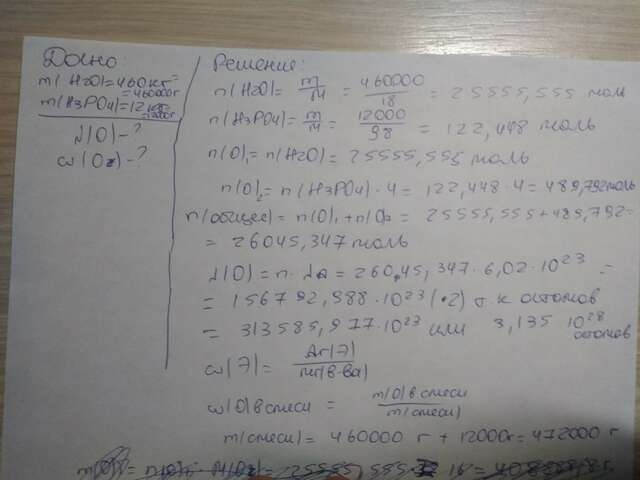 Дано:
m(H2O)=460кг=
=460000г
m(H3PO4)=12кг=
=12000г
N(O)-?
w(O)-?
Решение:
n(H2O)= m/M = 460000/18 = 25555,555 моль
n(H3PO4)= m/M = 12000/98 = 122,448 моль
n(O)1= n(H2O)= 25555,555 моль
n(O)2= n(H3PO4)·4= 122,448·4= 489,792моль
n(общее)= n(O)1+n(O)2= 25555,555+489,792=
= 26045,347 моль
N(O)= n·NA= 26045,347·6,02·10^23 =
= 156792,988·10^23 (·2) т.к атомов
= 313585,977·10^23 или 3,135 10^28
атомов
w(Э)= Ar(Э)/Mr(в-ва)
w(O)в смеси = m(O)в смеси/m(смеси)
m(смеси)= 460000 г + 12000г= 472000г